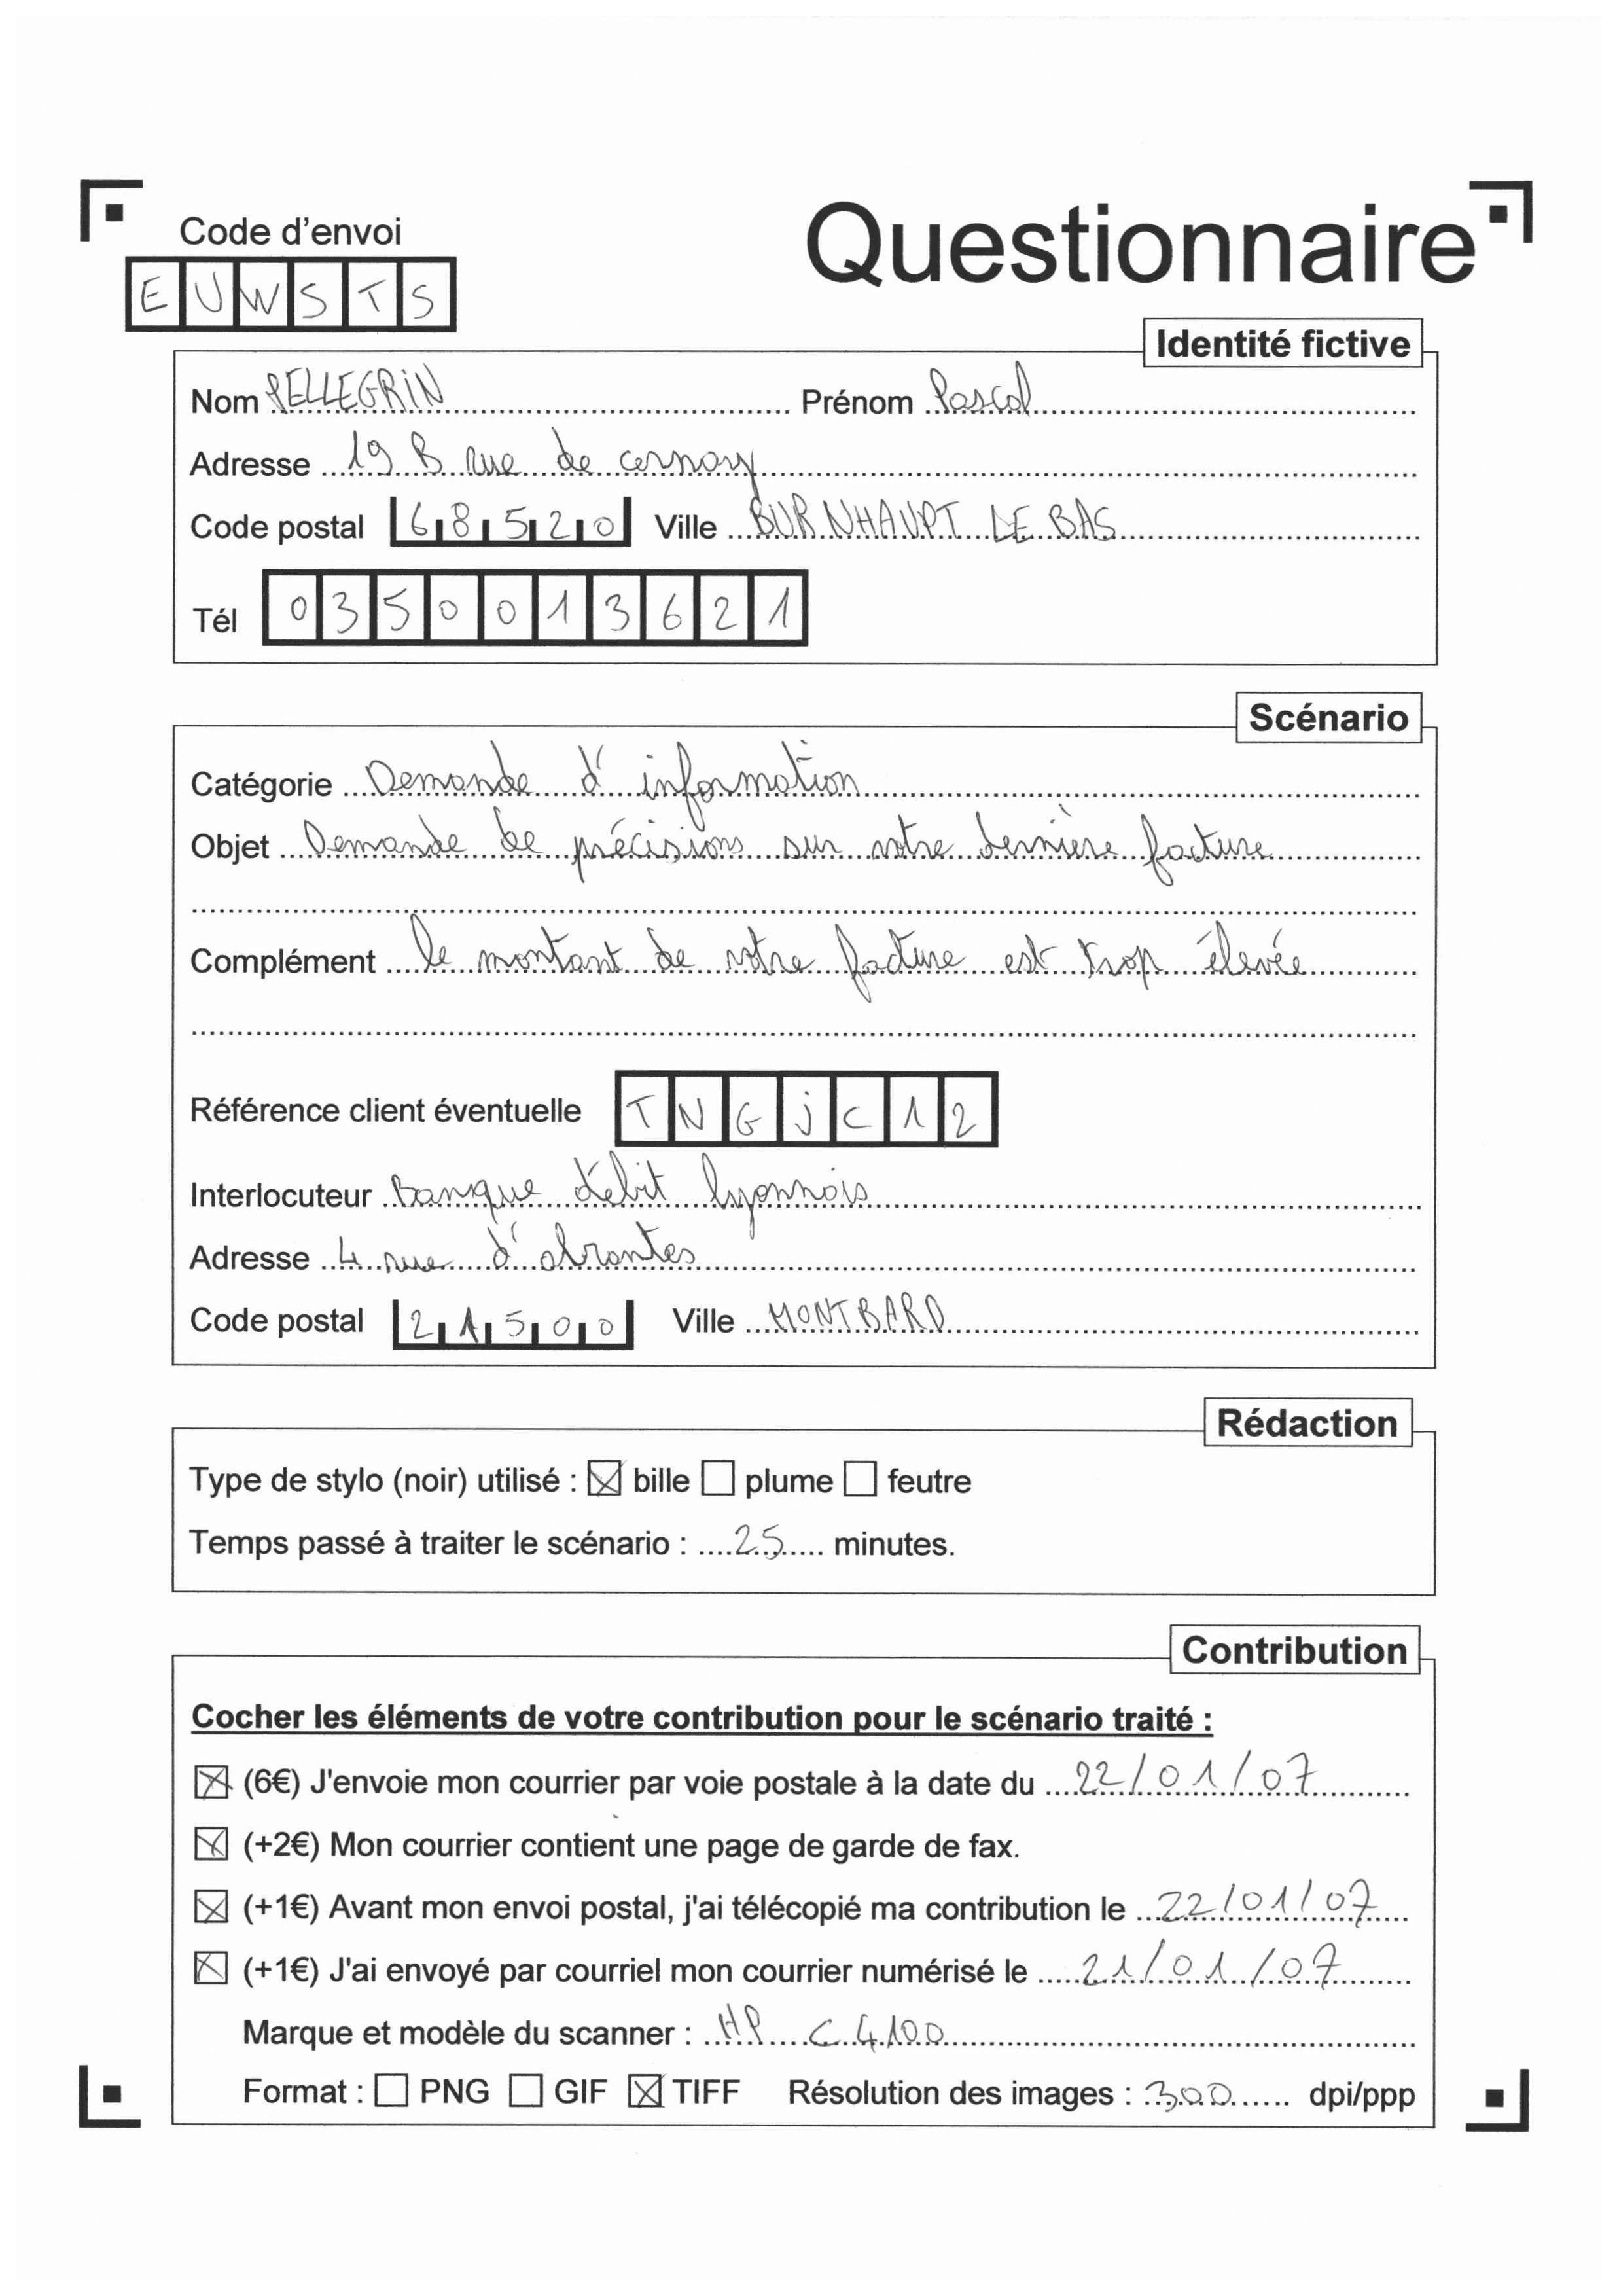 Code d'envoi
EUWSTS
Questionnaire
Identité fictive
Nom PELLEGRIN Prénom Pascal
Adresse 19 B rue de cernay
Code postal 68520 Ville BURNHAUPT LE BAS
Tél 0350013621
Scénario
Catégorie Demande d'information
Objet Demande de précisions sur votre dernière facture
Complément le montant de votre facture est trop élevée
Référence client éventuelle TNGjC12
Interlocuteur Banque débit lyonnais
Adresse 4 rue d'abrantes
Code postal 21500 Ville MONTBARD
Rédaction
Type de stylo (noir) utilisé : ☒ bille ☐ plume ☐ feutre
Temps passé à traiter le scénario : 25 minutes.
Contribution
Cocher les éléments de votre contribution pour le scénario traité :
☒ (6€) J'envoie mon courrier par voie postale à la date du 22/01/07
☒ (+2€) Mon courrier contient une page de garde de fax.
☒ (+1€) Avant mon envoi postal, j'ai télécopié ma contribution le 22/01/07
☒ (+1€) J'ai envoyé par courriel mon courrier numérisé le 21/01/07
Marque et modèle du scanner : HP C4100
Format : ☐ PNG ☐ GIF ☒ TIFF Résolution des images : 300 dpi/ppp